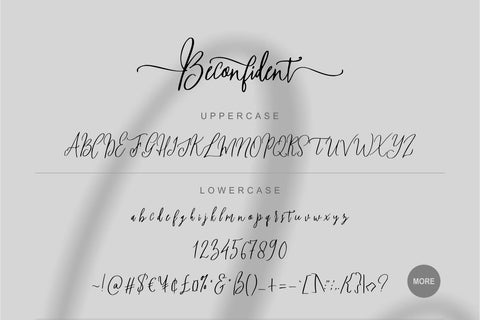 Beconfident
UPPERCASE
ABCDEFGHIJKLMNOPQRSTUVWXYZ
LOWERCASE
abcdefghijklmnopqrstuvwxyz
1234567890
MORE